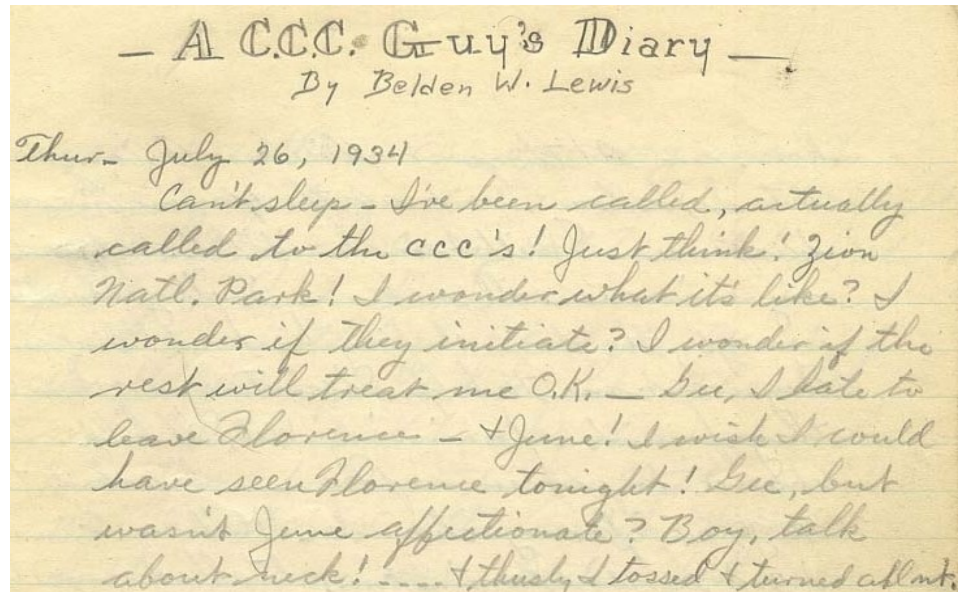 — A C.C.C. Guy's Diary —
By Belden W. Lewis
Thur- July 26, 1934
Can't sleep - I've been called, actually
called to the CCC's! Just think! Zion
Natl. Park! I wonder what it's like? I
wonder if they initiate? I wonder if the
rest will treat me O.K. — Gee, I hate to
leave Florence - & June! I wish I could
have seen Florence tonight! Gee, but
wasn't June affectionate? Boy, talk
about neck! .... & thusly I tossed & turned all nt.